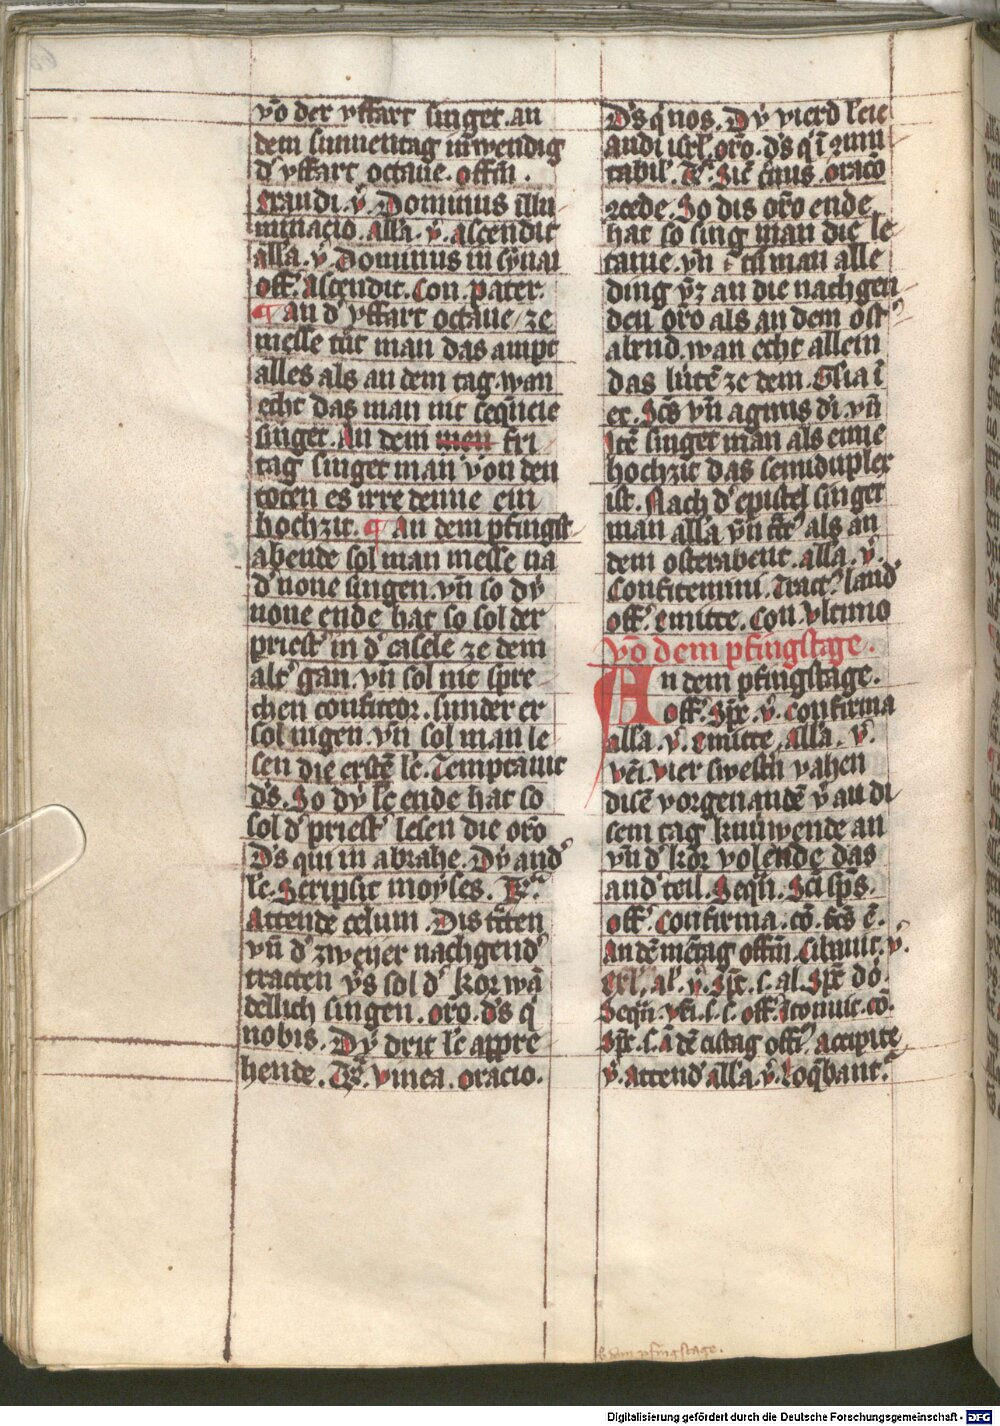 vō der vffart singet. an
dem sunnentag inwendig
d' vffart octaue. offm̄.
Exaudi. v̄. Dominus illu
minacio. alla. v̄. ascendit
alla. v̄. Dominus in synai
off. Ascendit. Con. pater.
¶ An d' vffart octaue ze
messe tůt man das ampt
alles als an dem tag. wan
echt das man nit sequēcie
singet. An dem men fri
tag singet man von den
toten es irre denne ein
hochzit. ¶ An dem pfingst
abende sol man messe na
d' none singen. vn̄ so dÿ
none ende hat so sol der
priest' in d' casele ze dem
alt' gan vn̄ sol nit spre
chen confiteor. sunder er
sol nigen. vn̄ sol man le
sen die erstē lc̄. Temptauit
ds̄. So dÿ lc̄ ende hat so
sol d' priest' lesen die oro
Ds̄ qui in abrahe. Dÿ and'
lc̄. Scripsit moyses. Tr̄.
Attende celum. Dis tr̄ten
vn̄ d' zweyer nachgend'
tracten v̄s sol d' kor wā
dellich singen. oro. ds̄ q'
nobis. Dÿ drit lc̄ appre
hende. Tr̄. vinea. oracio.
Ds̄ q' nos. Dÿ vierd lccie
audi isrl. oro. ds̄ q' ī
tabil'. Tr̄. Sic̄ ceruus. oracō
ꝯcede. So dis oro ende
hat so sing man die le
tanie. vn̄ tū man alle
ding v̄z an die nachgen
den oro als an dem ost'
abend. wan echt allein
das lutē ze dem. Glia ī
ex. Scs̄ vn̄ agnus di. vn̄
Itē singet man als eine
hochzit das semidupler
ist. Nach d' epistel singet
man alla vn̄ tr̄c' als an
dem osterabent. alla. v̄.
Confitemini. Tract'. laud'
off'. emitte. Con. vltimo
vō dem pfingstage.
An dem pfingstage.
off'. Spc̄. v̄. Confirma
alla. v̄. emitte. alla. v̄.
veī. vier swestn vahen
disē vorgenantē v̄ an di
sem tag knuwende an
vn̄ d' kor volende das
and' teil. Seqn̄. Sci sps̄.
off'. Confirma. cō. fcs̄ ē.
An dē mētag offm̄. Cibauit. v̄.
al'. v̄. Spc̄. s. al. Spc̄ do.
Seqn̄. veī. s. s. off'. Itonuit. cō.
Spc̄. s. ā dē cistag off'. accipite
v̄. attend' alla. v̄. loq̄bant'.
dem pfingstage.
Digitalisierung gefördert durch die Deutsche Forschungsgemeinschaft - DFG